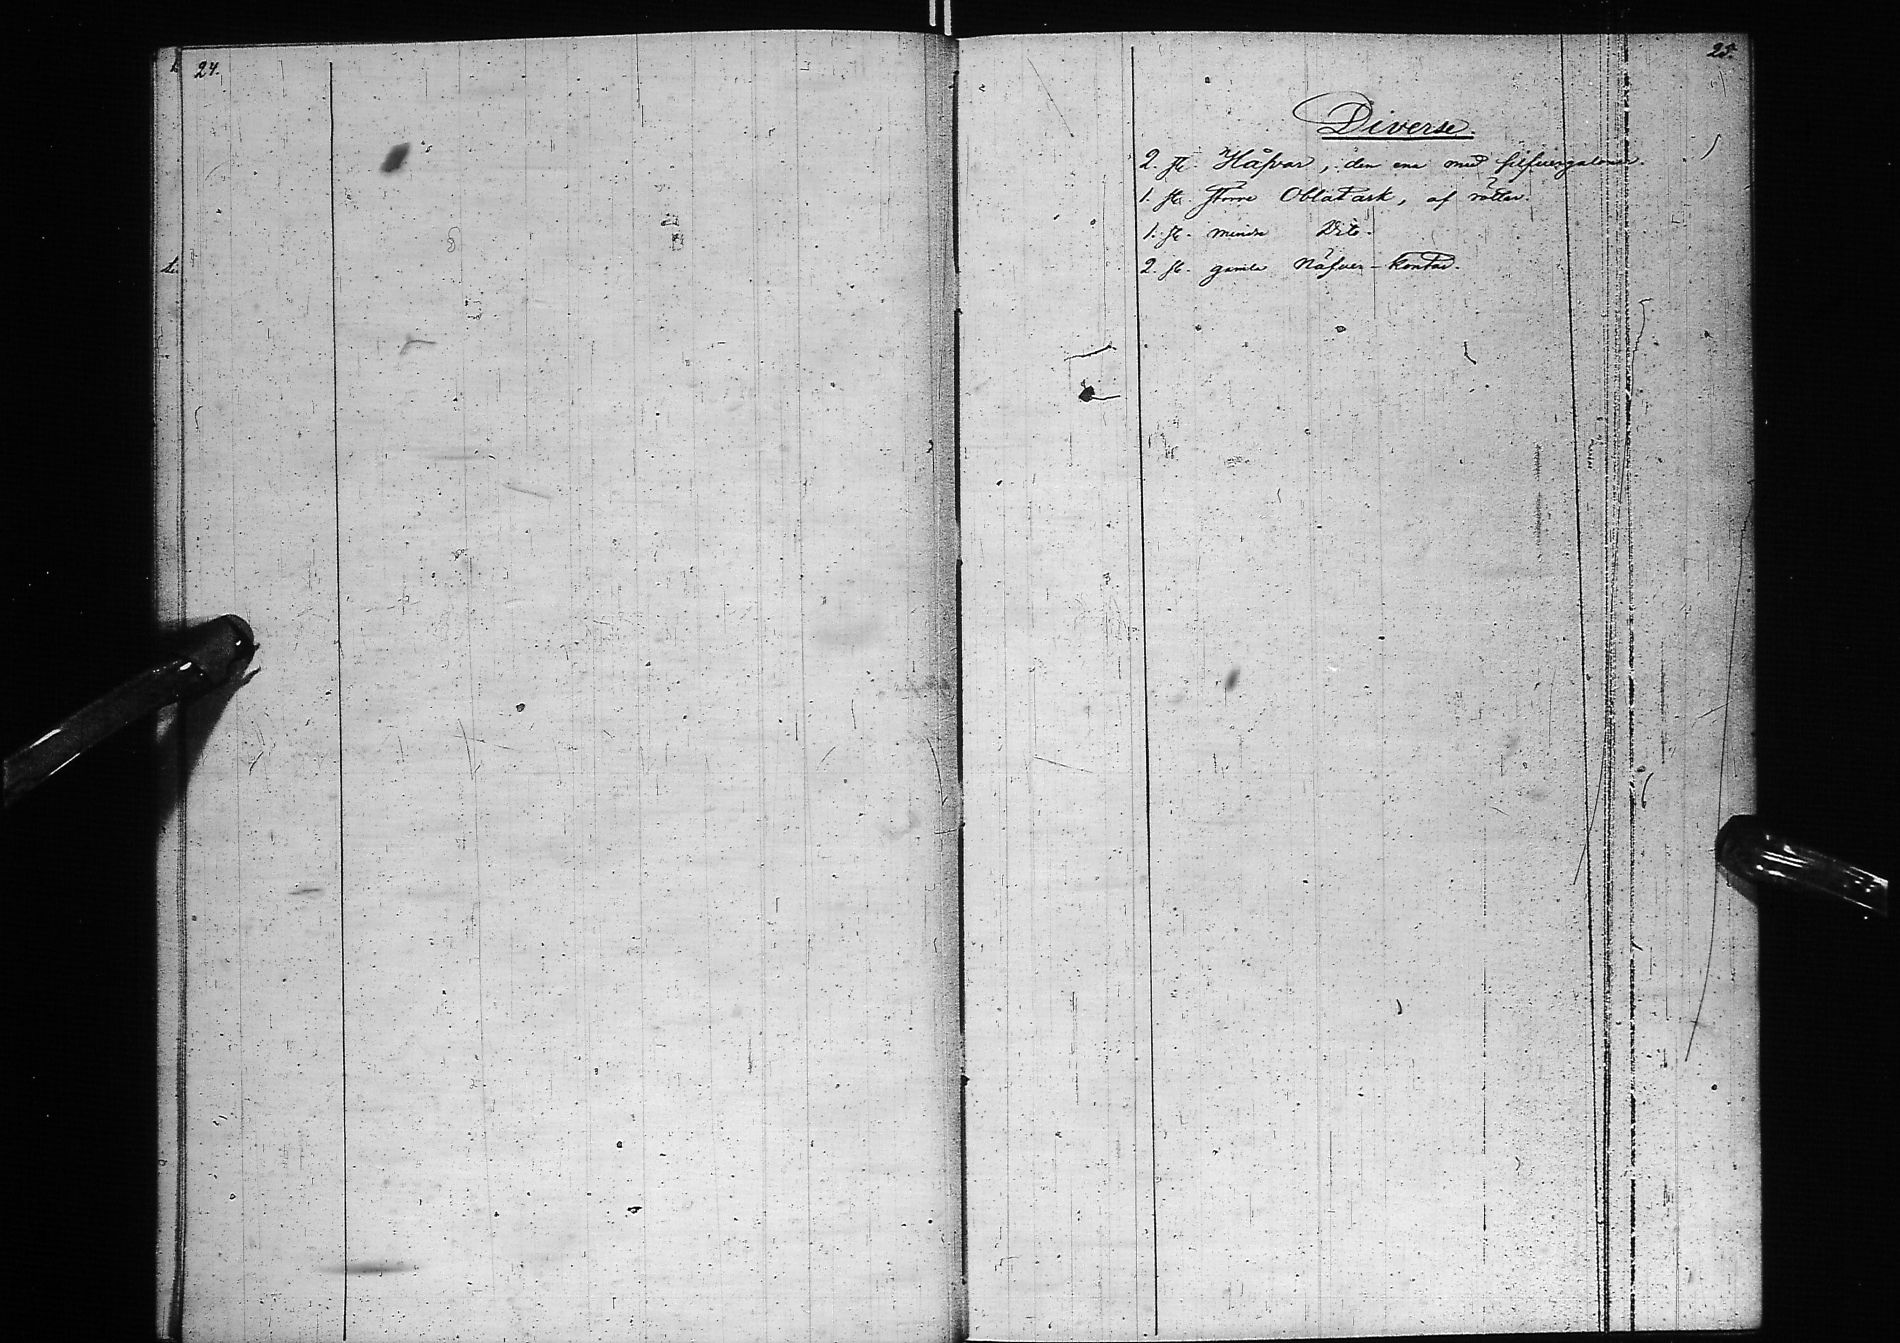 24.
25.
Diverse.
2. st. Håfvar, den ena med silfvergaloner.
1. st. större Oblatask, af rötter.
1. st. mindre Dito.
2. st. gamla Näfver-kontar.